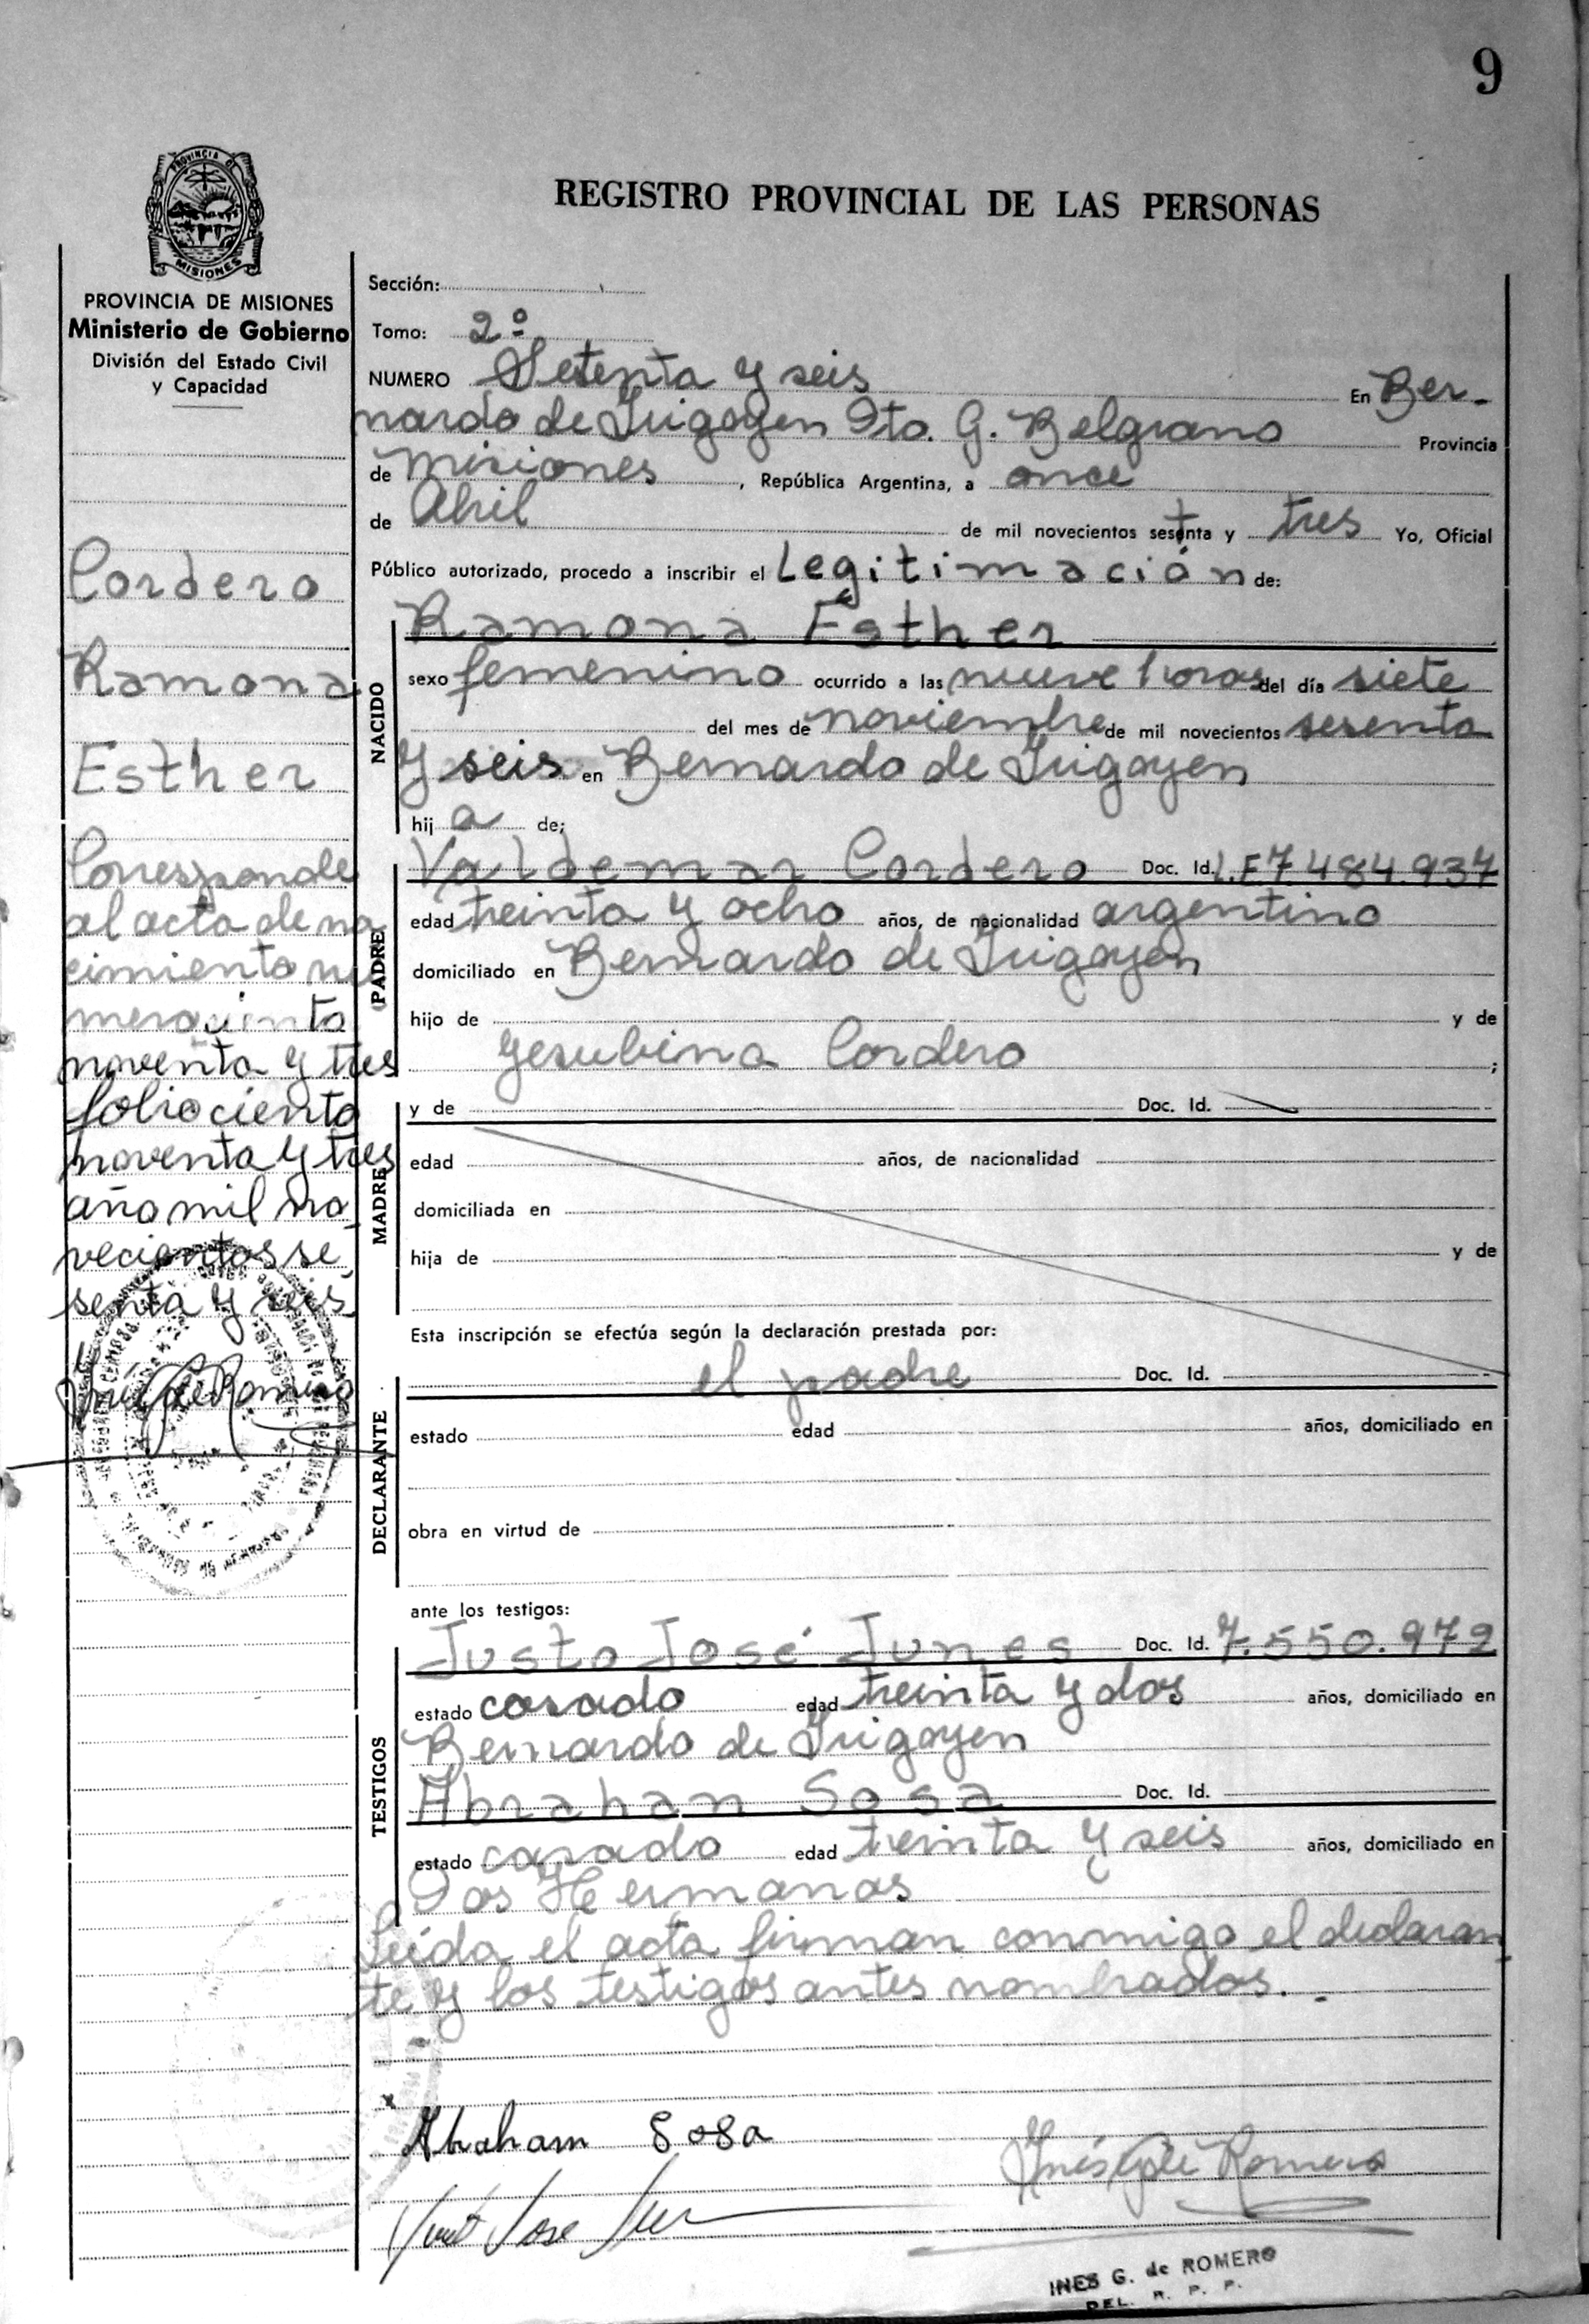 9
PROVINCIA DE
MISIONES
REGISTRO PROVINCIAL DE LAS PERSONAS
PROVINCIA DE MISIONES
Ministerio de Gobierno
División del Estado Civil
y Capacidad
Cordero
Ramona
Esther
Corresponde
al acta de na
cimiento nu
mero ciento
noventa y tres
folio ciento
noventa y tres
año mil no
vecientos se
senta y seis
Sección:
Tomo: 2º
NUMERO Setenta y seis En Ber-
nardo de Irigoyen Dto. G. Belgrano Provincia
de Misiones, República Argentina, a once
de Abril de mil novecientos setenta y tres Yo, Oficial
Público autorizado, procedo a inscribir el Legitimación de:
NACIDO
Ramona Esther
sexo femenino ocurrido a las nueve horas del día siete
del mes de noviembre de mil novecientos sesenta
y seis en Bernardo de Irigoyen
hij a de;
PADRE
Valdemar Cordero Doc. Id. L.E 7.484.937
edad treinta y ocho años, de nacionalidad argentino
domiciliado en Bernardo de Irigoyen
hijo de y de
Yesubina Cordero ;
MADRE
y de Doc. Id.
edad años, de nacionalidad
domiciliada en
hija de y de
Esta inscripción se efectúa según la declaración prestada por:
DECLARANTE
el padre Doc. Id.
estado edad años, domiciliado en
obra en virtud de
ante los testigos:
TESTIGOS
Justo José Junes Doc. Id. 7.550.972
estado casado edad treinta y dos años, domiciliado en
Bernardo de Irigoyen
Abrahan Sosa Doc. Id.
estado casado edad treinta y seis años, domiciliado en
Dos Hermanas
Leída el acta firman conmigo el declaran
te y los testigos antes nombrados.
Abraham Sosa
Inés G de Romero
José
INES G. de ROMERO
DEL. R. P. P.